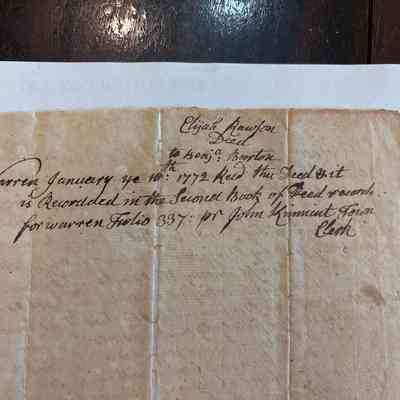 Elijah Rawson
Deed
to Benjᵃ: Barton
Warren January ye 10ᵗʰ: 1772 Recd this Deed & it
is Recordded in the Second Book of Deed records
for warren Folio 337: pr John Kinnicut Town
Clerk